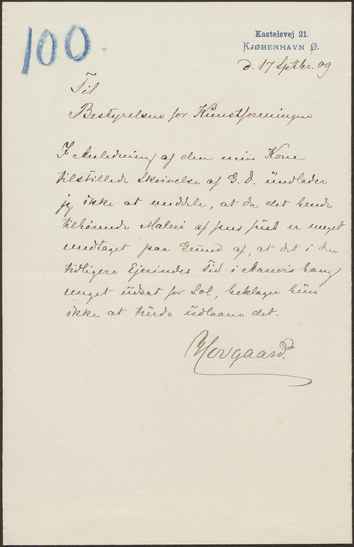 100.
Kastelsvej 21.
KJØBENHAVN Ø.
d. 17 Septbr. 09
Til
Bestyrelsen for Kunstforeningen
I Anledning af den min Kone
tilstillede Skrivelse af G. D. undlader
jeg ikke at meddele, at da det hende
tilhørende Maleri af Jens Juel er meget
medtaget paa Grund af, at det i den
tidligere Ejerindes Tid i Aarevis hang
meget udsat for Sol, beklager hun
ikke at turde udlaane det.
Hovgaard.